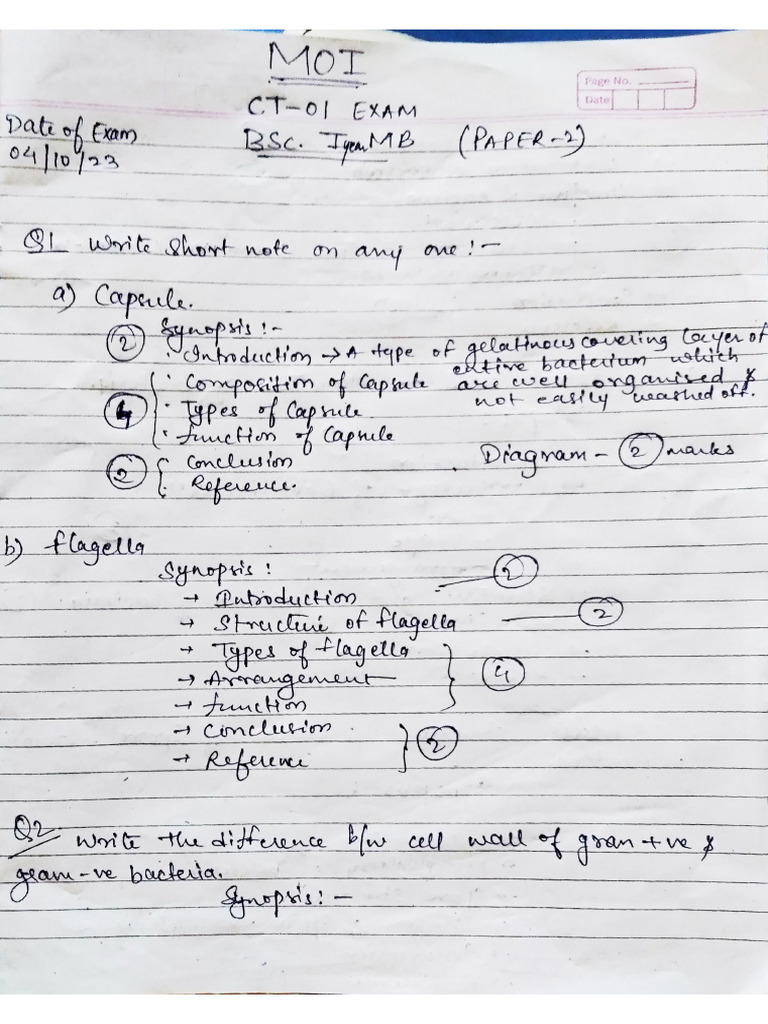 MOI
Page No.
Date
CT-01 EXAM
Date of Exam
BSc. I year MB (PAPER-2)
04/10/23
Q1 Write short note on any one:-
a) Capsule.
② Synopsis:-
· Introduction → A type of gelatinous covering layer of
entire bacterium which
· Composition of Capsule are well organised &
not easily washed off.
④ · Types of Capsule
· Function of Capsule
② · Conclusion
· Reference.
Diagram - ② marks
b) Flagella
Synopsis:
→ Introduction — ②
→ Structure of flagella — ②
→ Types of flagella
→ Arrangement ④
→ Function
→ Conclusion ②
→ Reference
Q2 Write the difference b/w cell wall of gran +ve &
gram -ve bacteria.
Synopsis:-